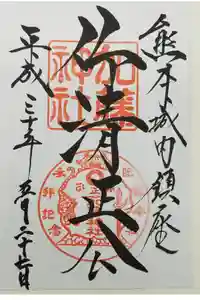 熊本城内鎮座
仰清正公
平成三十年 月二十 日
加藤
神社
拝記念